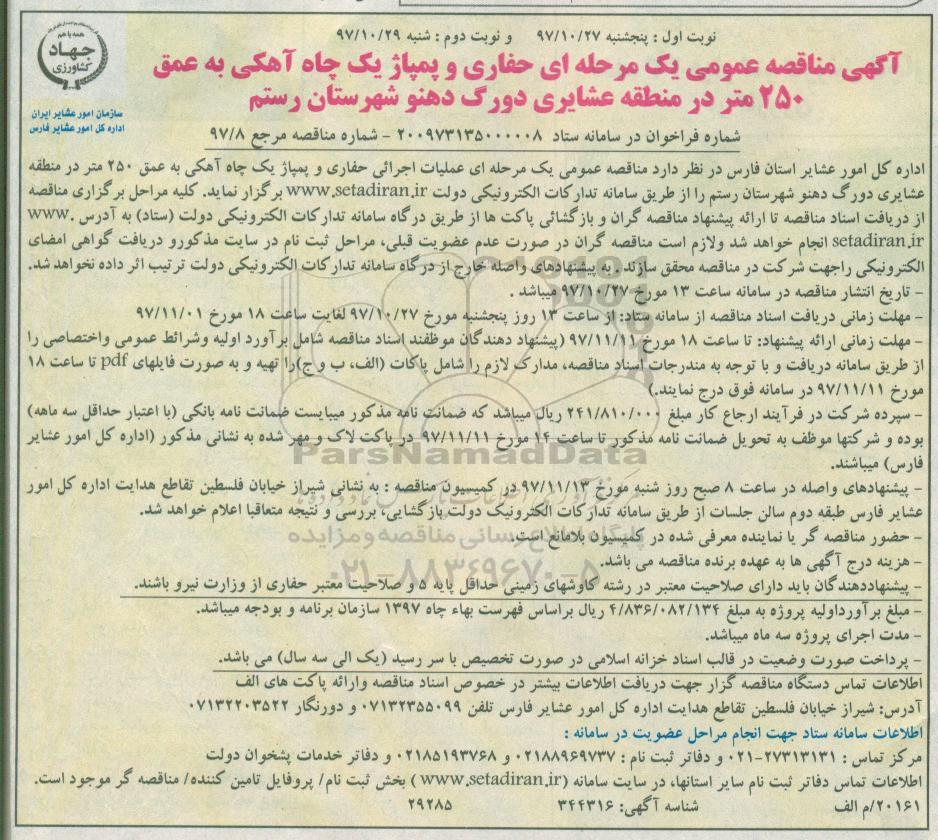 نوبت اول : پنجشنبه ۹۷/۱۰/۲۷ و نوبت دوم : شنبه ۹۷/۱۰/۲۹
آگهی مناقصه عمومی یک مرحله ای حفاری و پمپاژ یک چاه آهکی به عمق
۲۵۰ متر در منطقه عشایری دورگ دهنو شهرستان رستم
همه با هم
جهاد
کشاورزی
سازمان امور عشایر ایران
اداره کل امور عشایر فارس
شماره فراخوان در سامانه ستاد ۲۰۰۹۷۳۱۳۵۰۰۰۰۰۸ - شماره مناقصه مرجع ۹۷/۸
اداره کل امور عشایر استان فارس در نظر دارد مناقصه عمومی یک مرحله ای عملیات اجرائی حفاری و پمپاژ یک چاه آهکی به عمق ۲۵۰ متر در منطقه
عشایری دورگ دهنو شهرستان رستم را از طریق سامانه تدارکات الکترونیکی دولت www.setadiran.ir برگزار نماید. کلیه مراحل برگزاری مناقصه
از دریافت اسناد مناقصه تا ارائه پیشنهاد مناقصه گران و بازگشائی پاکت ها از طریق درگاه سامانه تدارکات الکترونیکی دولت (ستاد) به آدرس www.
setadiran.ir انجام خواهد شد ولازم است مناقصه گران در صورت عدم عضویت قبلی، مراحل ثبت نام در سایت مذکورو دریافت گواهی امضای
الکترونیکی راجهت شرکت در مناقصه محقق سازند . به پیشنهادهای واصله خارج از درگاه سامانه تدارکات الکترونیکی دولت ترتیب اثر داده نخواهد شد.
- تاریخ انتشار مناقصه در سامانه ساعت ۱۳ مورخ ۹۷/۱۰/۲۷ میباشد .
- مهلت زمانی دریافت اسناد مناقصه از سامانه ستاد: از ساعت ۱۳ روز پنجشنبه مورخ ۹۷/۱۰/۲۷ لغایت ساعت ۱۸ مورخ ۹۷/۱۱/۰۱
- مهلت زمانی ارائه پیشنهاد: تا ساعت ۱۸ مورخ ۹۷/۱۱/۱۱ (پیشنهاد دهندگان موظفند اسناد مناقصه شامل برآورد اولیه وشرائط عمومی واختصاصی را
از طریق سامانه دریافت و با توجه به مندرجات اسناد مناقصه، مدارک لازم را شامل پاکات (الف، ب و ج)را تهیه و به صورت فایلهای pdf تا ساعت ۱۸
مورخ ۹۷/۱۱/۱۱ در سامانه فوق درج نمایند.)
- سپرده شرکت در فرآیند ارجاع کار مبلغ ۲۴۱/۸۱۰/۰۰۰ ریال میباشد که ضمانت نامه مذکور میبایست ضمانت نامه بانکی (با اعتبار حداقل سه ماهه)
بوده و شرکتها موظف به تحویل ضمانت نامه مذکور تا ساعت ۱۴ مورخ ۹۷/۱۱/۱۱ در پاکت لاک و مهر شده به نشانی مذکور (اداره کل امور عشایر
فارس) میباشند.
- پیشنهادهای واصله در ساعت ۸ صبح روز شنبه مورخ ۹۷/۱۱/۱۳ در کمیسیون مناقصه : به نشانی شیراز خیابان فلسطین تقاطع هدایت اداره کل امور
عشایر فارس طبقه دوم سالن جلسات از طریق سامانه تدارکات الکترونیک دولت بازگشایی، بررسی و نتیجه متعاقبا اعلام خواهد شد.
- حضور مناقصه گر یا نماینده معرفی شده در کمیسیون بلامانع است.
- هزینه درج آگهی ها به عهده برنده مناقصه می باشد.
- پیشنهاددهندگان باید دارای صلاحیت معتبر در رشته کاوشهای زمینی حداقل پایه ۵ و صلاحیت معتبر حفاری از وزارت نیرو باشند.
- مبلغ برآورداولیه پروژه به مبلغ ۴/۸۳۶/۰۸۲/۱۳۴ ریال براساس فهرست بهاء چاه ۱۳۹۷ سازمان برنامه و بودجه میباشد.
- مدت اجرای پروژه سه ماه میباشد.
- پرداخت صورت وضعیت در قالب اسناد خزانه اسلامی در صورت تخصیص با سر رسید (یک الی سه سال) می باشد.
اطلاعات تماس دستگاه مناقصه گزار جهت دریافت اطلاعات بیشتر در خصوص اسناد مناقصه وارائه پاکت های الف
آدرس: شیراز خیابان فلسطین تقاطع هدایت اداره کل امور عشایر فارس تلفن ۰۷۱۳۲۳۵۵۰۹۹ و دورنگار ۰۷۱۳۲۲۰۳۵۲۲
اطلاعات سامانه ستاد جهت انجام مراحل عضویت در سامانه :
مرکز تماس : ۲۷۳۱۳۱۳۱-۰۲۱ و دفاتر ثبت نام : ۰۲۱۸۸۹۶۹۷۳۷ و ۰۲۱۸۵۱۹۳۷۶۸ و دفاتر خدمات پشخوان دولت
اطلاعات تماس دفاتر ثبت نام سایر استانها، در سایت سامانه (www.setadiran.ir) بخش ثبت نام/ پروفایل تامین کننده/ مناقصه گر موجود است.
۲۰۱۶۱/م الف شناسه آگهی: ۳۴۴۳۱۶ ۲۹۲۸۵
ParsNamadData
پایگاه اطلاع رسانی مناقصه و مزایده
۰۲۱-۸۸۳۴۹۶۷۰-۵